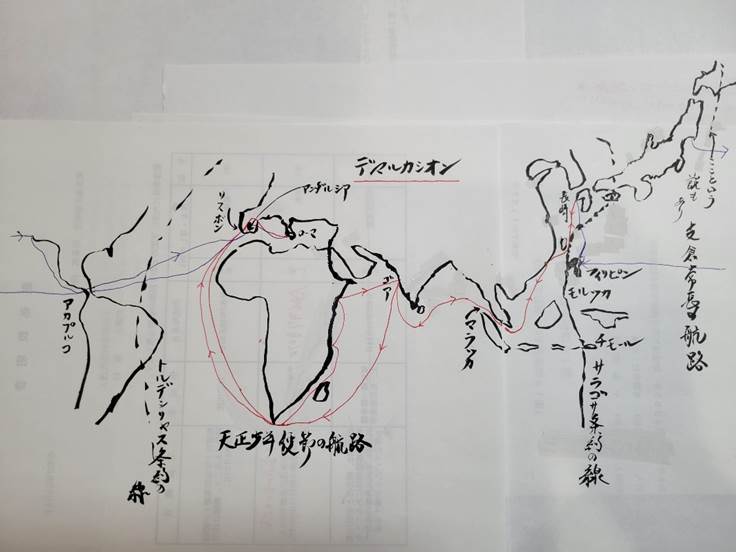 デマルカシオン
アンダルシア
リスボン
ローマ
ゴア
マラッカ
長崎
フィリピン
モルッカ
チモール
アカプルコ
トルデシリャス条約の線
天正少年使節の航路
サラゴサ条約の線
支倉常長航路
ここという
説もあり